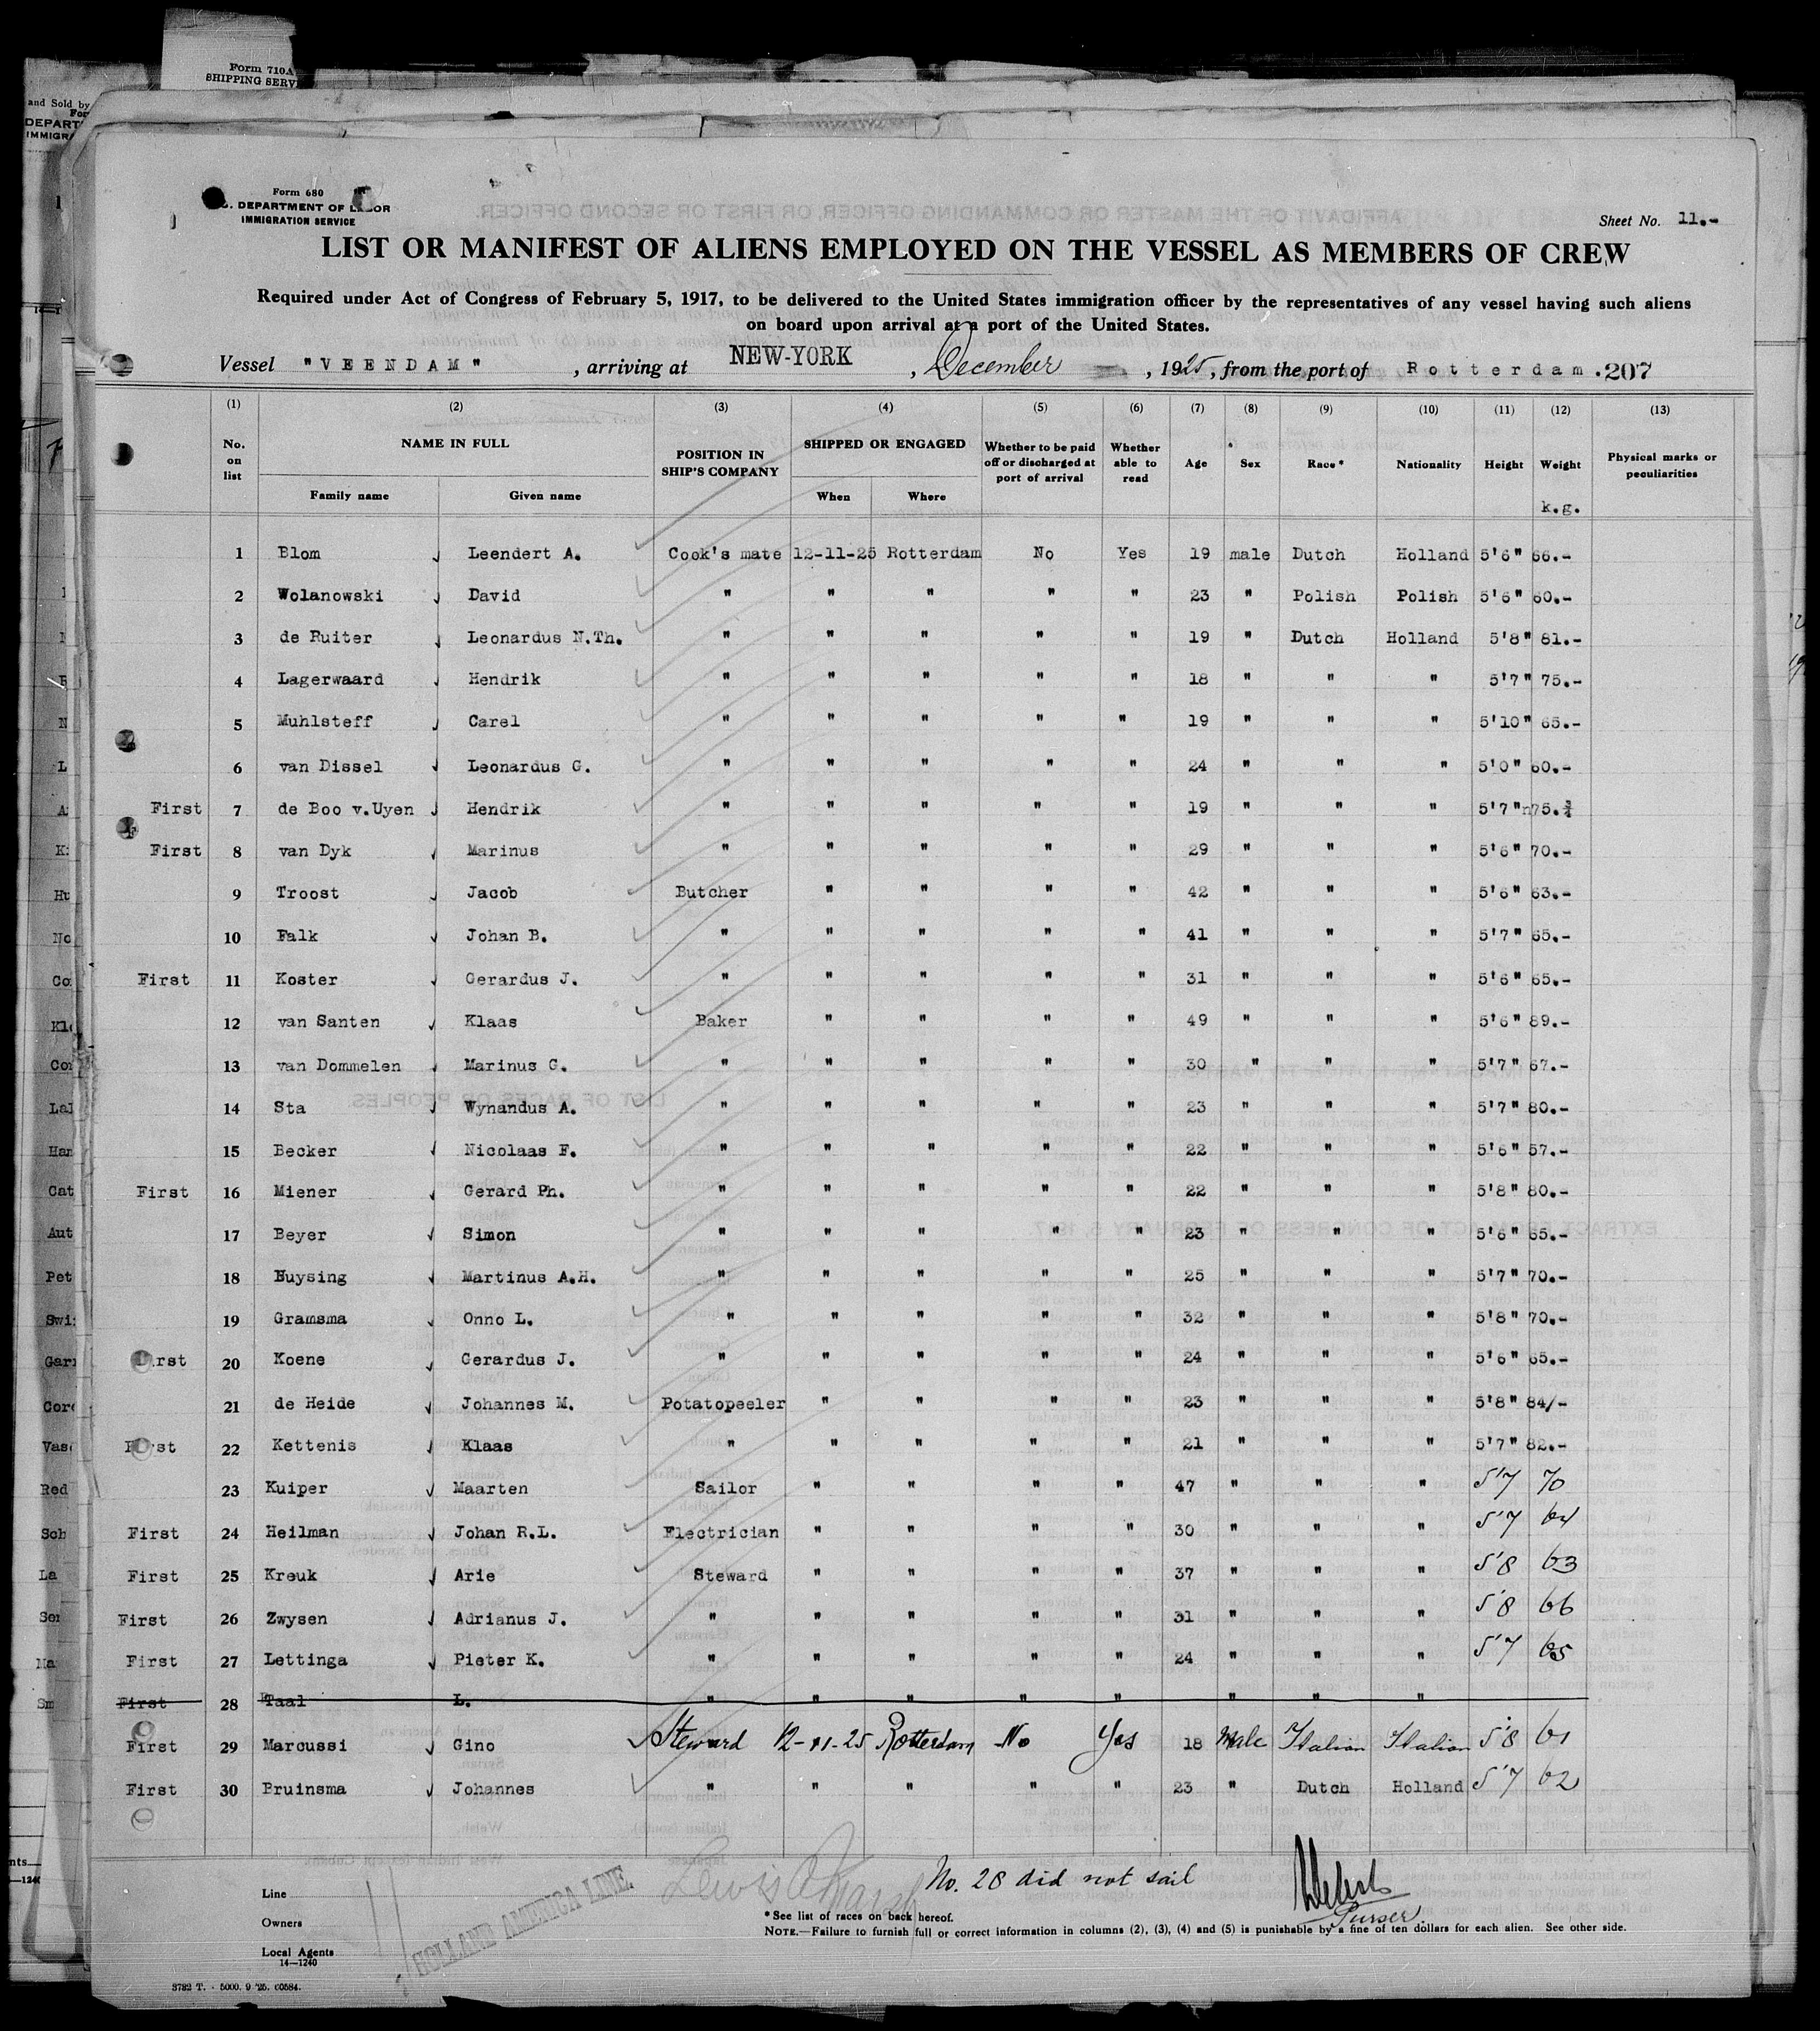 Form 710A
SHIPPING SERV
and Sold by
DEPART
IMMIGR
Form 680
DEPARTMENT OF LABOR
IMMIGRATION SERVICE
Sheet No. 11.-
LIST OR MANIFEST OF ALIENS EMPLOYED ON THE VESSEL AS MEMBERS OF CREW
Required under Act of Congress of February 5, 1917, to be delivered to the United States immigration officer by the representatives of any vessel having such aliens
on board upon arrival at a port of the United States.
Vessel "VEENDAM" , arriving at NEW-YORK , December , 1925, from the port of Rotterdam. 207
(1) (2) (3) (4) (5) (6) (7) (8) (9) (10) (11) (12) (13)
No. on list NAME IN FULL Family name Given name POSITION IN SHIP'S COMPANY SHIPPED OR ENGAGED When Where Whether to be paid off or discharged at port of arrival Whether able to read Age Sex Race* Nationality Height Weight k.g. Physical marks or peculiarities
1 Blom Leendert A. Cook's mate 12-11-25 Rotterdam No Yes 19 male Dutch Holland 5'6" 66.-
2 Wolanowski David " " " " " 23 " Polish Polish 5'6" 60.-
3 de Ruiter Leonardus N.Th. " " " " " 19 " Dutch Holland 5'8" 81.-
4 Lagerwaard Hendrik " " " " " 18 " " " 5'7" 75.-
5 Muhlsteff Carel " " " " " 19 " " " 5'10" 65.-
6 van Dissel Leonardus G. " " " " " 24 " " " 5'0" 60.-
First 7 de Boo v.Uyen Hendrik " " " " " 19 " " " 5'7" 75.
First 8 van Dyk Marinus " " " " " 29 " " " 5'6" 70.-
9 Troost Jacob Butcher " " " " 42 " " " 5'6" 63.-
10 Falk Johan B. " " " " " 41 " " " 5'7" 65.-
First 11 Koster Gerardus J. " " " " " 31 " " " 5'6" 65.-
12 van Santen Klaas Baker " " " " 49 " " " 5'6" 89.-
13 van Dommelen Marinus G. " " " " " 30 " " " 5'7" 67.-
14 Sta Wynandus A. " " " " " 23 " " " 5'7" 80.-
15 Becker Nicolaas F. " " " " " 22 " " " 5'6" 57.-
First 16 Miener Gerard Ph. " " " " " 22 " " " 5'8" 80.-
17 Beyer Simon " " " " " 23 " " " 5'6" 65.-
18 Huysing Martinus A.H. " " " " " 25 " " " 5'7" 70.-
19 Gramsma Onno L. " " " " " 32 " " " 5'8" 70.-
First 20 Koene Gerardus J. " " " " " 24 " " " 5'6" 65.-
21 de Heide Johannes M. Potatopeeler " " " " 23 " " " 5'8" 84/-
First 22 Kettenis Klaas " " " " " 21 " " " 5'7" 82.-
23 Kuiper Maarten Sailor " " " " 47 " " " 5'7 70
First 24 Heilman Johan R.L. Electrician " " " " 30 " " " 5'7 64
First 25 Kreuk Arie Steward " " " " 37 " " " 5'8 63
First 26 Zwysen Adrianus J. " " " " " 31 " " " 5'8 66
First 27 Lettinga Pieter K. " " " " " 24 " " " 5'7 65
First 28 Taal L. " " " " " " " "
First 29 Marcussi Gino Steward 12-11-25 Rotterdam No Yes 18 Male Italian Italian 5'8 61
First 30 Bruinsma Johannes " " " " " 23 " Dutch Holland 5'7 62
No. 28 did not sail
Line
Owners
Local Agents
14-1240
HOLLAND AMERICA LINE.
Purser.
* See list of races on back hereof.
NOTE.—Failure to furnish full or correct information in columns (2), (3), (4) and (5) is punishable by a fine of ten dollars for each alien. See other side.
3782 T. - 5000. 9 '25. 60584.